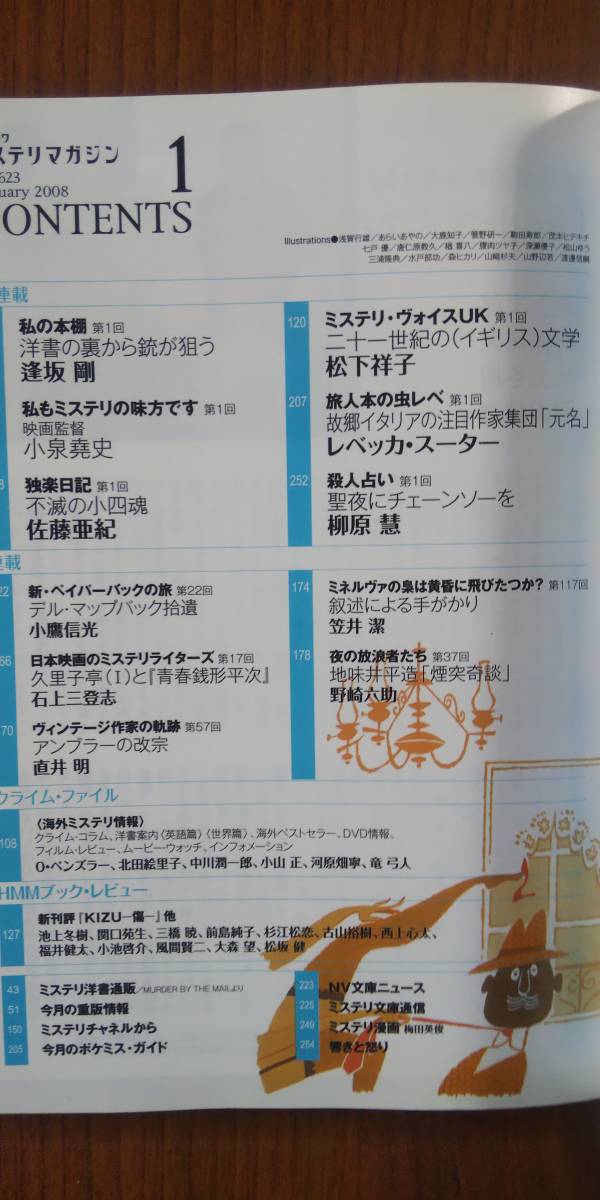 ワ
ステリマガジン
623
uary 2008
1
ONTENTS
Illustrations●浅賀行雄／あらいあやの／大鹿知子／管野研一／駒田寿郎／茂本ヒデキチ
七戸 優／唐仁原教久／楢 喜八／腹肉ツヤ子／深瀬優子／松山ゆう
三浦隆典／水戸部功／森ヒカリ／山﨑杉夫／山野辺若／渡邊信綱
連載
私の本棚 第1回
洋書の裏から銃が狙う
逢坂 剛
私もミステリの味方です 第1回
映画監督
小泉堯史
8 独楽日記 第1回
不滅の小四魂
佐藤亜紀
120 ミステリ・ヴォイスUK 第1回
二十一世紀の(イギリス)文学
松下祥子
207 旅人本の虫レベ 第1回
故郷イタリアの注目作家集団「元名」
レベッカ・スーター
252 殺人占い 第1回
聖夜にチェーンソーを
柳原 慧
連載
22 新・ペイパーバックの旅 第22回
デル・マップバック拾遺
小鷹信光
66 日本映画のミステリライターズ 第17回
久里子亭(Ⅰ)と『青春銭形平次』
石上三登志
70 ヴィンテージ作家の軌跡 第57回
アンブラーの改宗
直井 明
174 ミネルヴァの梟は黄昏に飛びたつか? 第117回
叙述による手がかり
笠井 潔
178 夜の放浪者たち 第37回
地味井平造「煙突奇談」
野崎六助
クライム・ファイル
108 〈海外ミステリ情報〉
クライム・コラム、洋書案内〈英語篇〉〈世界篇〉、海外ベストセラー、DVD情報、
フィルム・レビュー、ムービー・ウォッチ、インフォメーション
O・ペンズラー、北田絵里子、中川潤一郎、小山 正、河原畑寧、竜 弓人
HMMブック・レビュー
127 新刊評『KIZU―傷―』他
池上冬樹、関口苑生、三橋 曉、前島純子、杉江松恋、古山裕樹、西上心太、
福井健太、小池啓介、風間賢二、大森 望、松坂 健
43 ミステリ洋書通販／MURDER BY THE MAILより
51 今月の重版情報
150 ミステリチャネルから
205 今月のポケミス・ガイド
223 NV文庫ニュース
225 ミステリ文庫通信
249 ミステリ漫画 梅田英俊
254 響きと怒り